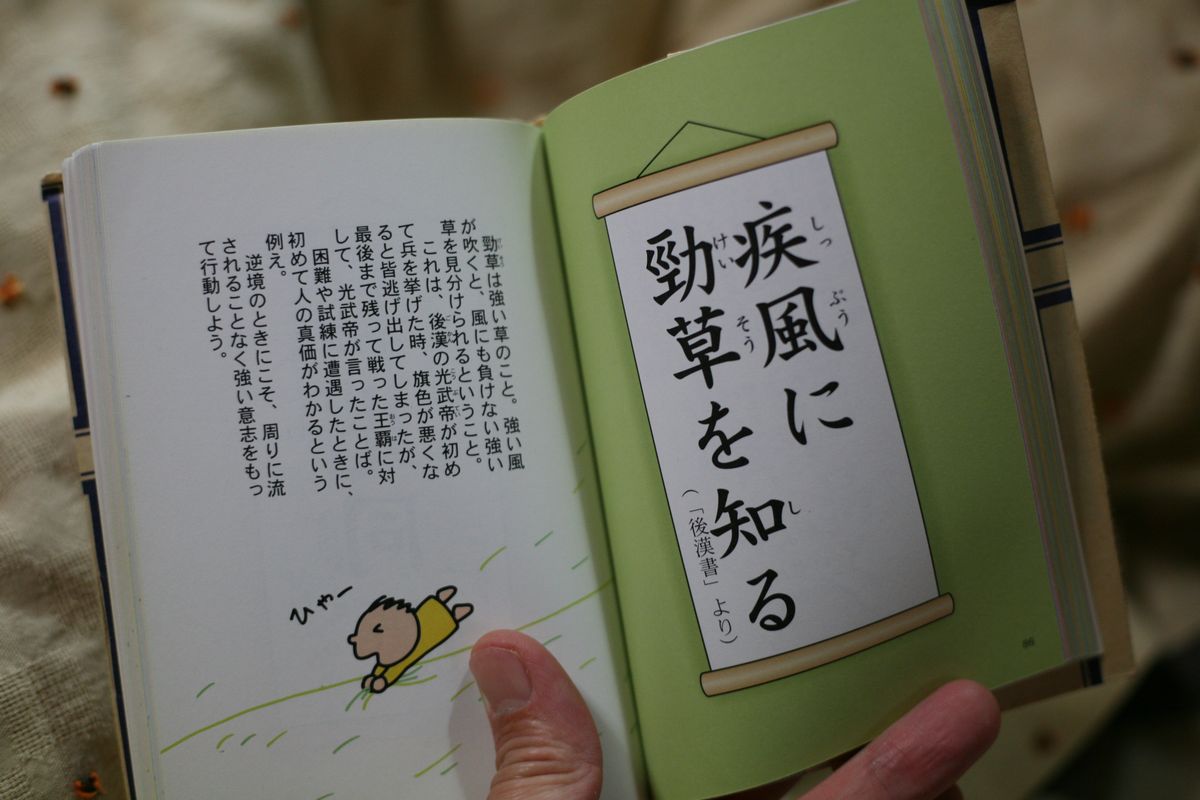 疾風に
勁草を知る
しっ
ぷう
けい
そう
し
(「後漢書」より)
勁草は強い草のこと。強い風
が吹くと、風にも負けない強い
草を見分けられるということ。
これは、後漢の光武帝が初め
て兵を挙げた時、旗色が悪くな
ると皆逃げ出してしまったが、
最後まで残って戦った王覇に対
して、光武帝が言ったことば。
困難や試練に遭遇したときに、
初めて人の真価がわかるという
例え。
逆境のときにこそ、周りに流
されることなく強い意志をもっ
て行動しよう。
ひゃー